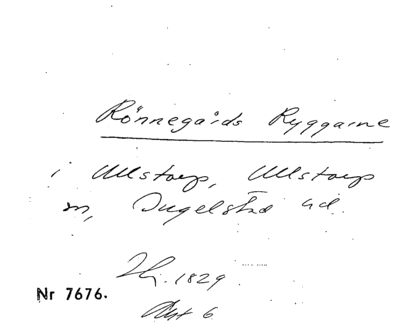 Rönnegårds Ryggarne
i Ullstorp, Ullstorp
sn, Ingelstad hd.
1829
Nr 7676.
Akt 6